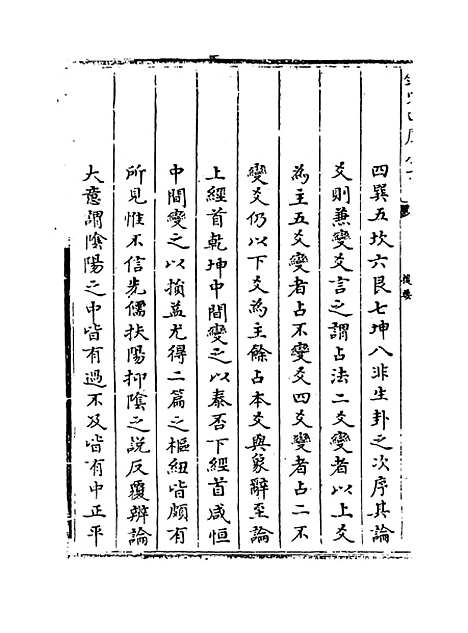 提要
四巽五坎六艮七坤八非生卦之次序其論
爻則兼變爻言之謂占法二爻變者以上爻
為主五爻變者占不變爻四爻變者占二不
變爻仍以下爻為主餘占本爻與彖辭至論
上經首乾坤中間變之以泰否下經首咸恒
中間變之以損益尤得二篇之樞紐皆頗有
所見惟不信先儒扶陽抑陰之說反覆辨論
大意謂陰陽之中皆有過不及皆有中正平